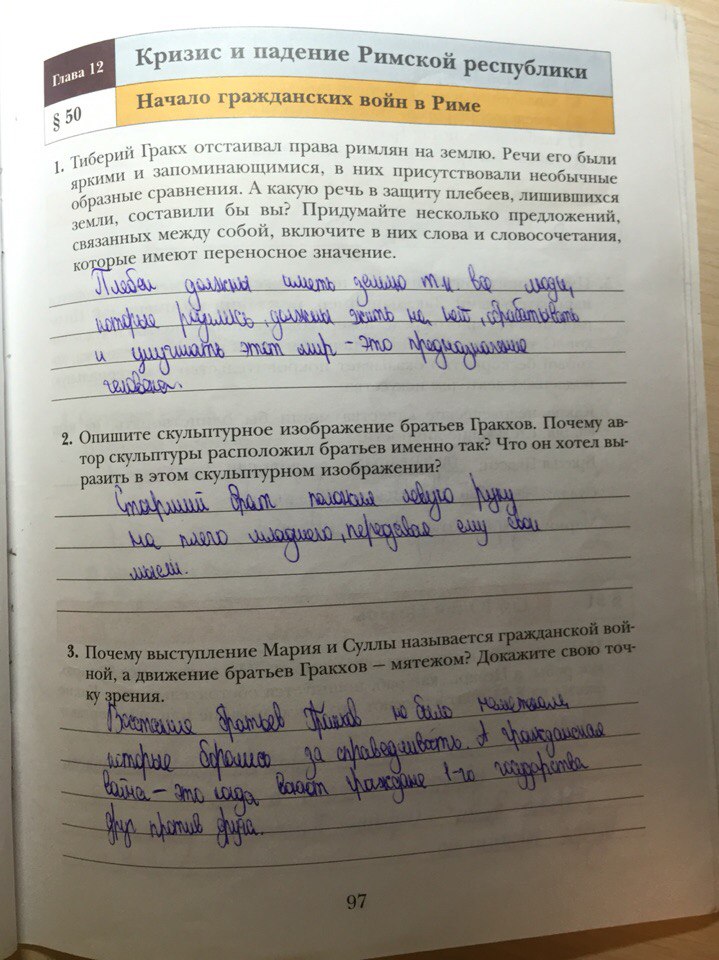 Глава 12
Кризис и падение Римской республики
§ 50
Начало гражданских войн в Риме
1. Тиберий Гракх отстаивал права римлян на землю. Речи его были
яркими и запоминающимися, в них присутствовали необычные
образные сравнения. А какую речь в защиту плебеев, лишившихся
земли, составили бы вы? Придумайте несколько предложений,
связанных между собой, включите в них слова и словосочетания,
которые имеют переносное значение.
Плебеи должны иметь землю т.к. все люди,
которые родились, должны жить на ней, обрабатывать
и улучшать этот мир – это предназначение
человека.
2. Опишите скульптурное изображение братьев Гракхов. Почему ав-
тор скульптуры расположил братьев именно так? Что он хотел вы-
разить в этом скульптурном изображении?
Старший брат положил левую руку
на плечо младшего, передавая ему свои
мысли.
3. Почему выступление Мария и Суллы называется гражданской вой-
ной, а движение братьев Гракхов — мятежом? Докажите свою точ-
ку зрения.
братьев было
которые боролись за справедливость. А гражданская
война – это когда граждане 1-го государства
друг против друга.
97